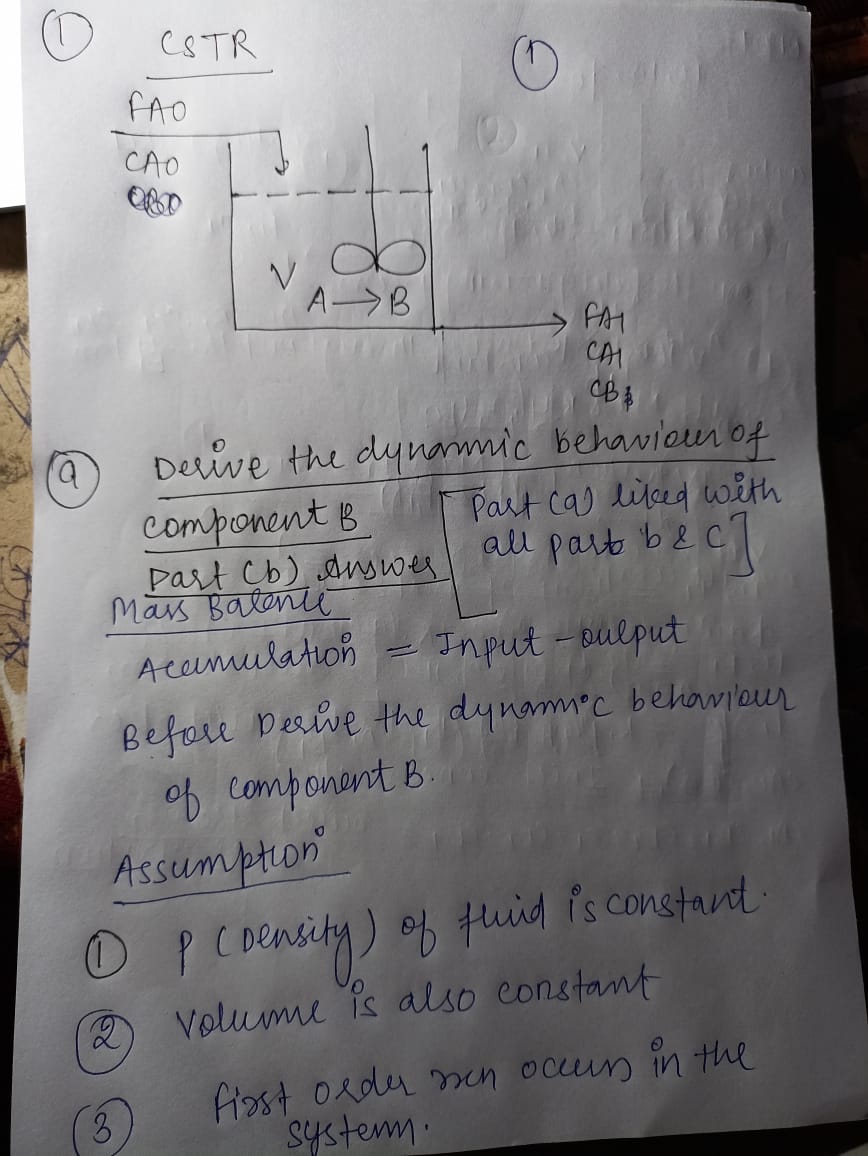 1 CSTR 1
FAO
CAO
V
A → B
FA1
CA1
CB
a Derive the dynammic behaviour of
component B [Part (a) liked with
Part (b) Answer all part b & c]
Mass Balence
Accumulation = Input - output
Before Derive the dynammic behaviour
of component B.
Assumption
1 ρ (Density) of fluid is constant.
2 Volumme is also constant
3 first order rxn occurs in the
systemm.